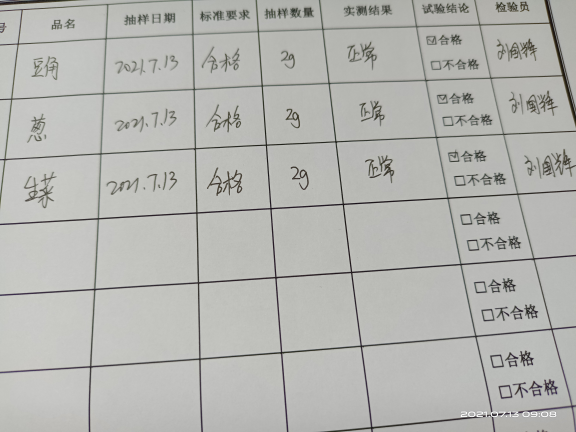 号 品名 抽样日期 标准要求 抽样数量 实测结果 试验结论 检验员
豆角 2021.7.13 合格 2g 正常 ☑合格 □不合格 刘国辉
葱 2021.7.13 合格 2g 正常 ☑合格 □不合格 刘国辉
生菜 2021.7.13 合格 2g 正常 ☑合格 □不合格 刘国辉
□合格
□不合格
□合格
□不合格
□合格
□不合格
2021.07.13 09:08